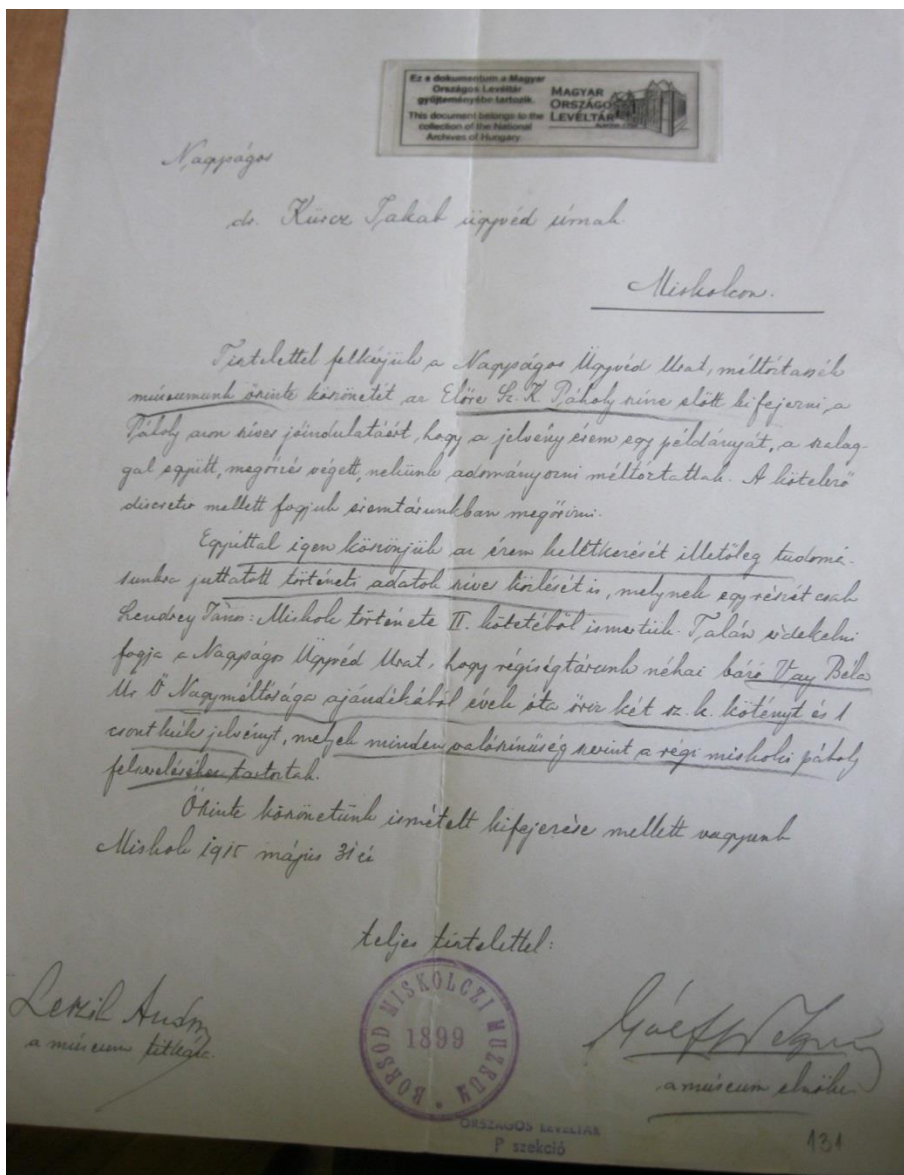 Ez a dokumentum a Magyar
Országos Levéltár
gyűjteményébe tartozik.
This document belongs to the
collection of the National
Archives of Hungary.
MAGYAR
ORSZÁGOS
LEVÉLTÁR
Nagyságos
dr. Kürcz Jakab ügyvéd úrnak.
Miskolcon.
Tisztelettel felkérjük a Nagyságos Ügyvéd Urat, méltóztassék
múzeumunk őszinte köszönetét az Előre Sz. K. Páholy színe előtt kifejezni, a
Páholy azon szíves jóindulatáért, hogy a jelvény érem egy példányát, a szalag-
gal együtt, megőrzés végett, nekünk adományozni méltóztattak. A kötelező
discretio mellett fogjuk éremtárunkban megőrizni.
Egyúttal igen köszönjük az érem keletkezését illetőleg tudomá-
sunkra juttatott történeti adatok szíves közlését is, melynek egy részét csak
Szendrey János: Miskolc története II. kötetéből ismertük. Talán érdekelni
fogja a Nagyságos Ügyvéd Urat, hogy régiségtárunk néhai báró Vay Béla
Úr Ő Nagyméltósága ajándékából évek óta őriz két sz. k. kötényt és 1
csont jelvényt, melyek minden valószínűség szerint a régi miskolci páholy
felszereléséhez tartoztak.
Őszinte köszönetünk ismételt kifejezése mellett vagyunk
Miskolc 1915 május 31 én
teljes tisztelettel:
Leszih Andor
a múzeum titkára.
BORSOD MISKOLCZI MUZEUM
1899
Gálffy Ignác
a múzeum elnöke.
ORSZÁGOS LEVÉLTÁR
P szekció
131